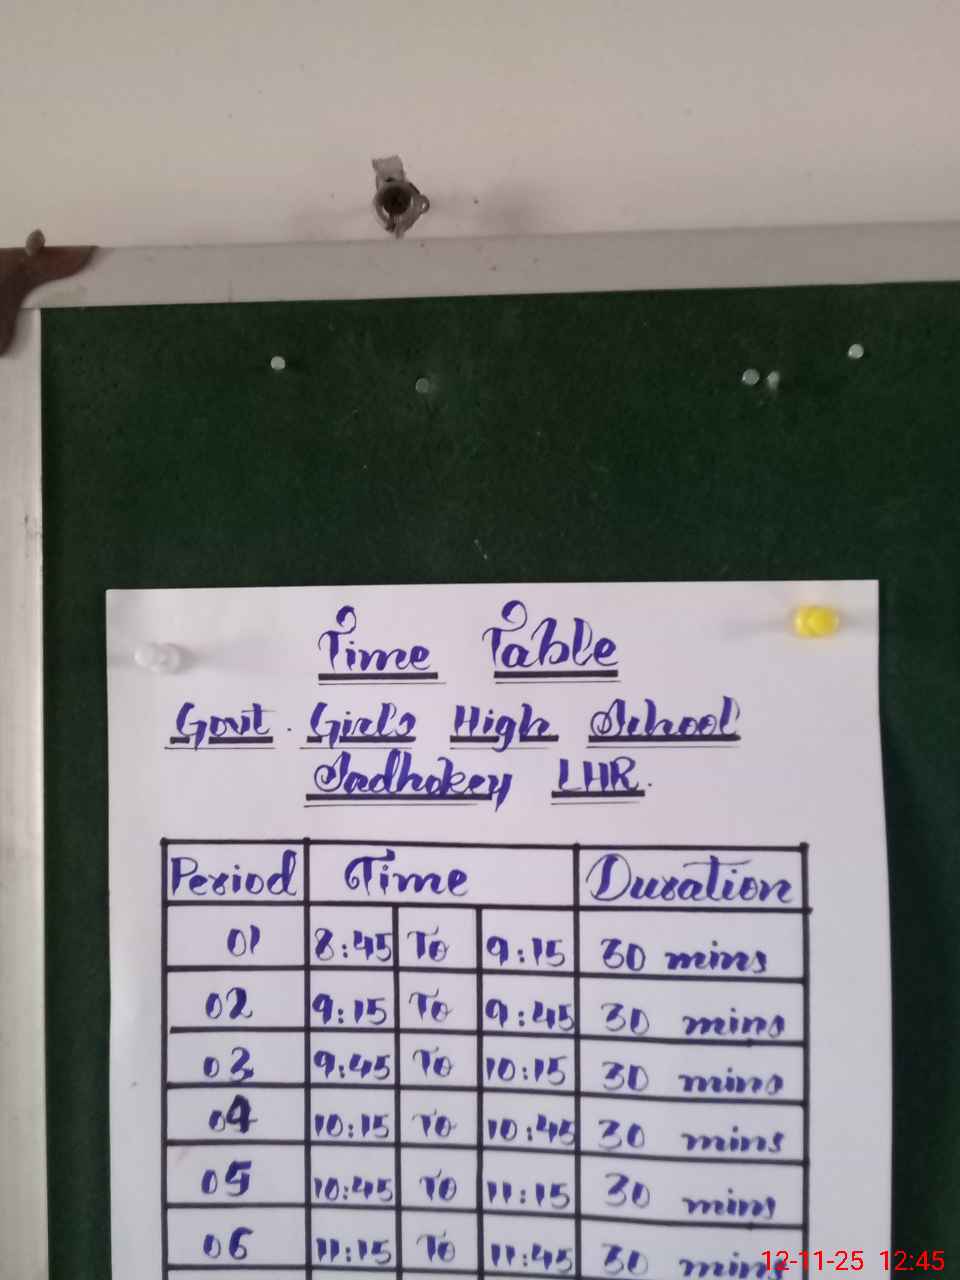 Time Table
Govt. Girls High School
Sadhokey LHR.
Period Time Duration
01 8:45 To 9:15 30 mins
02 9:15 To 9:45 30 mins
03 9:45 To 10:15 30 mins
04 10:15 To 10:45 30 mins
05 10:45 To 11:15 30 mins
06 11:15 To 11:45 30 mins
12-11-25 12:45